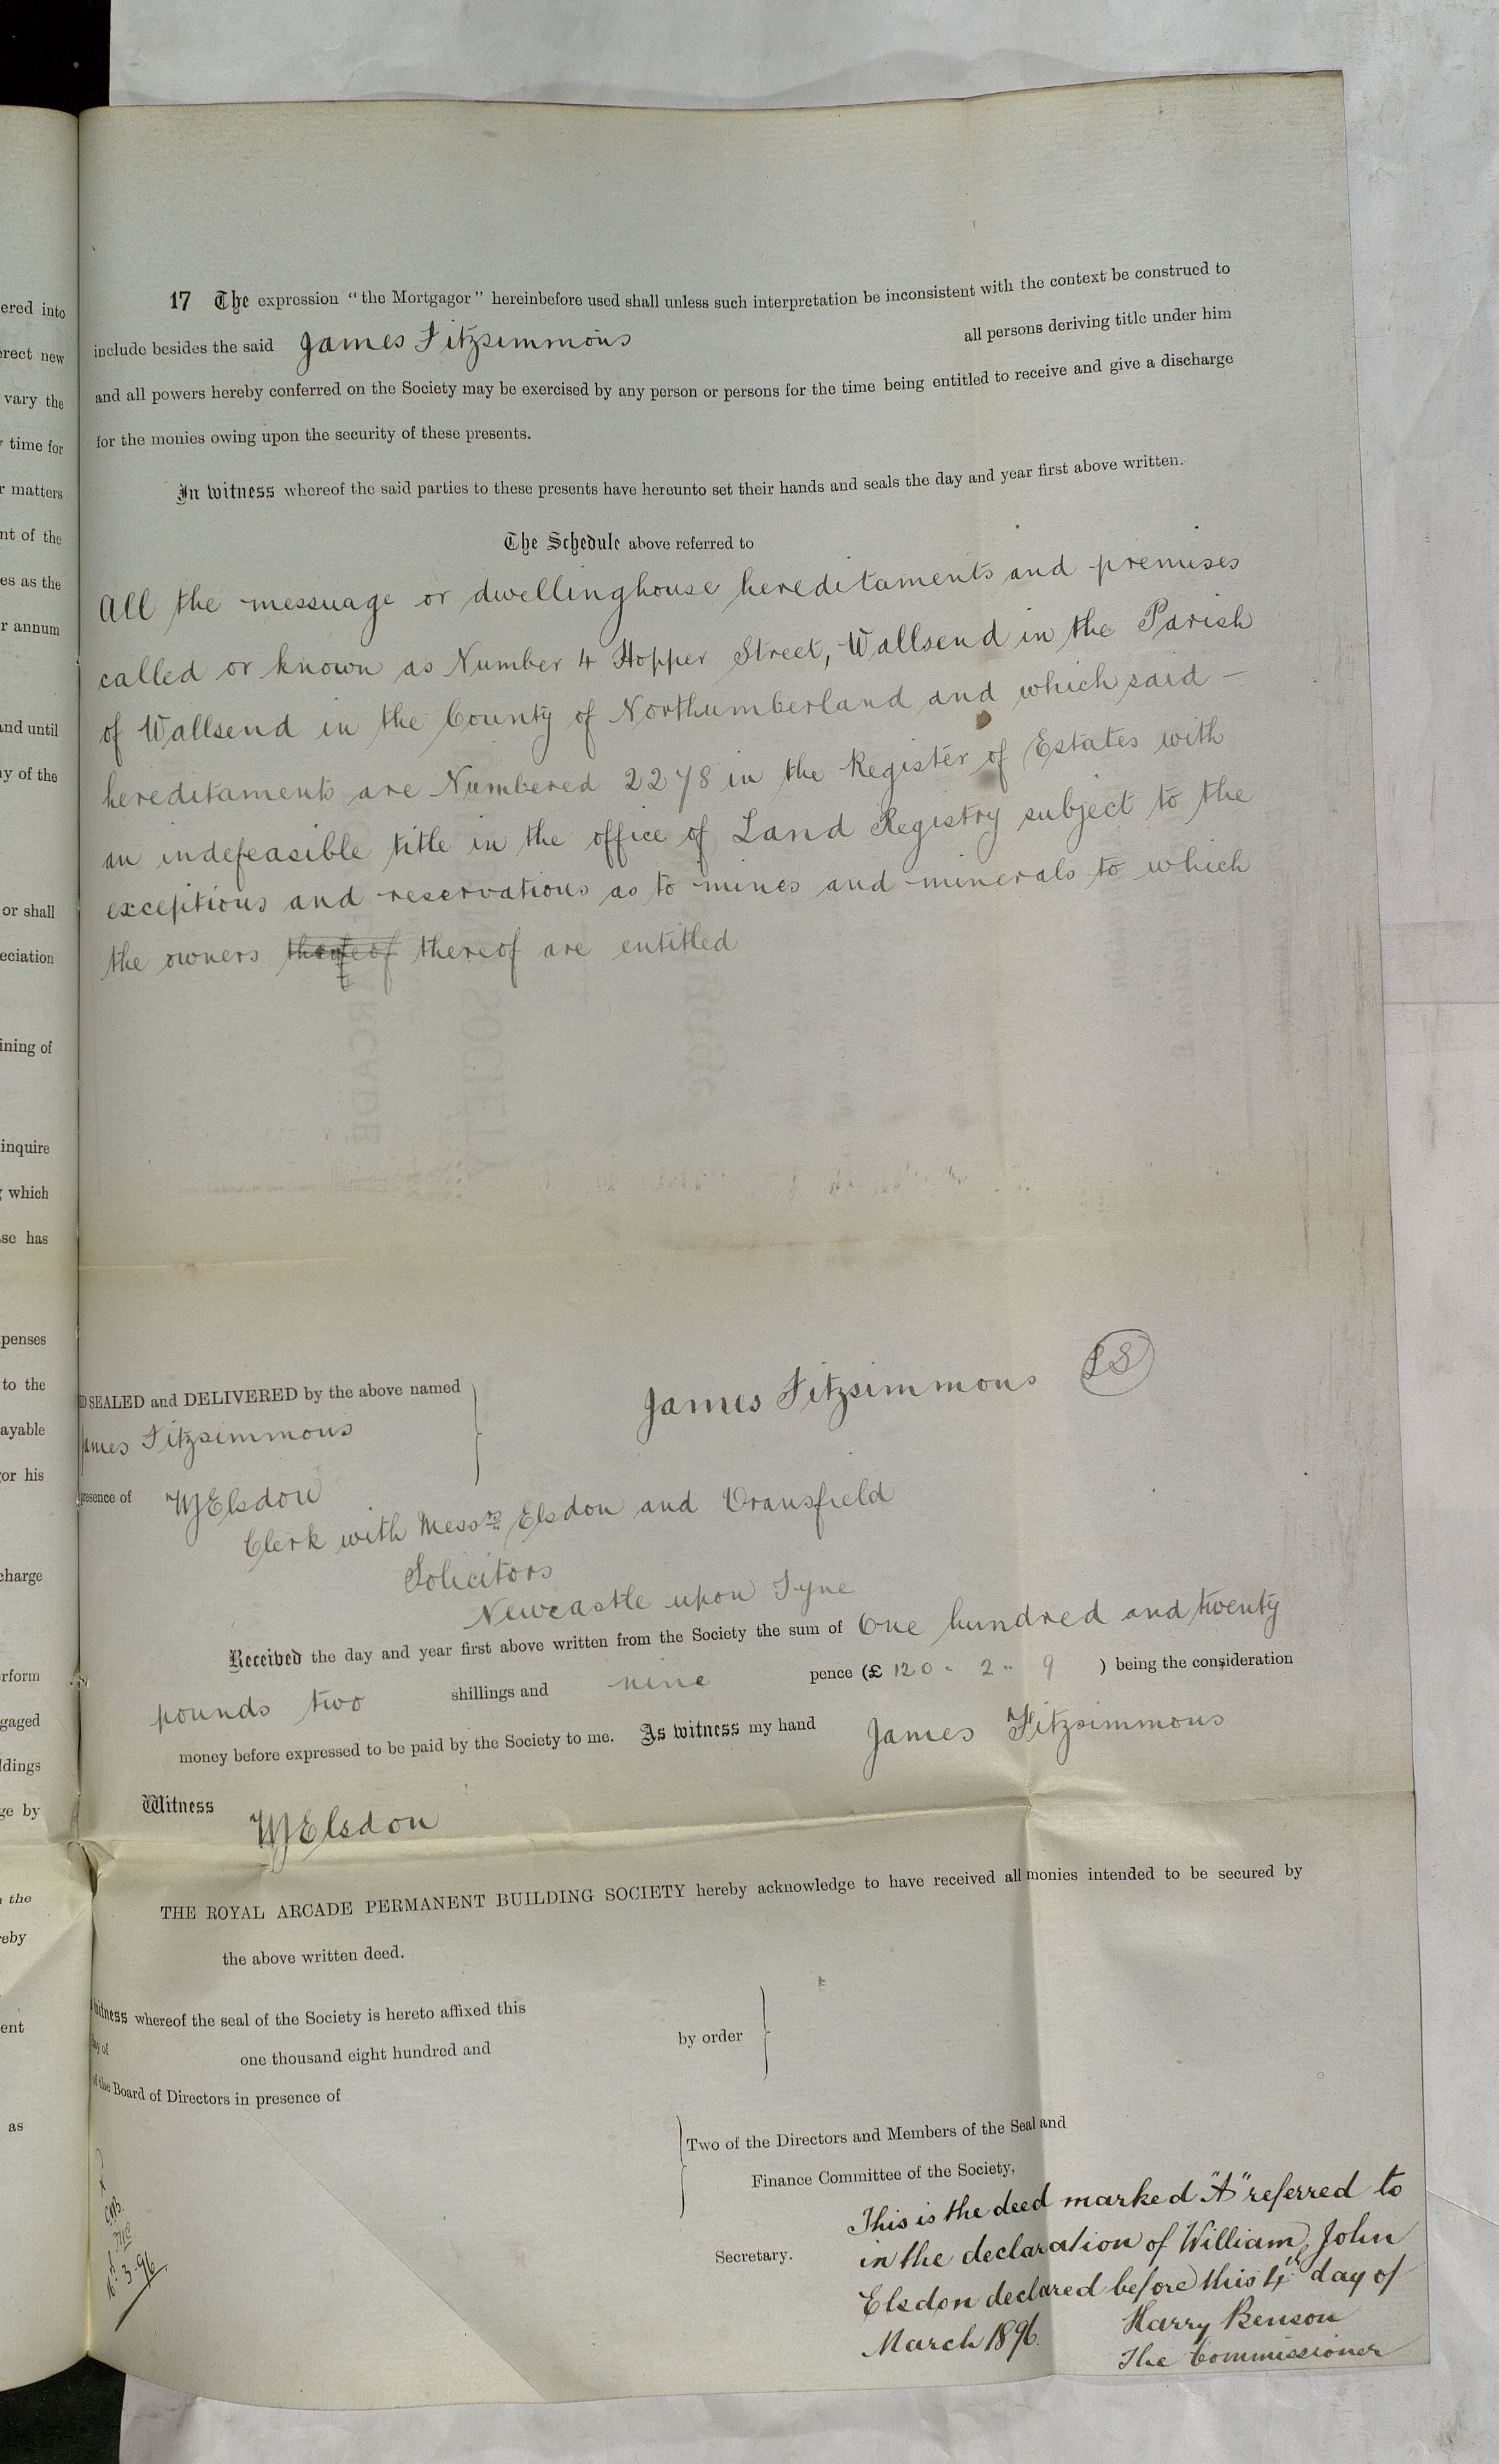 ered into
erect new
vary the
time for
r matters
nt of the
es as the
r annum
and until
y of the
or shall
eciation
ining of
inquire
which
se has
penses
to the
ayable
or his
charge
rform
gaged
ldings
ge by
the
reby
ent
as
17 The expression "the Mortgagor" hereinbefore used shall unless such interpretation be inconsistent with the context be construed to
include besides the said James Fitzsimmons all persons deriving title under him
and all powers hereby conferred on the Society may be exercised by any person or persons for the time being entitled to receive and give a discharge
for the monies owing upon the security of these presents.
In witness whereof the said parties to these presents have hereunto set their hands and seals the day and year first above written.
The Schedule above referred to
All the messuage or dwellinghouse hereditaments and premises
called or known as Number 4 Hopper Street, Wallsend in the Parish
of Wallsend in the County of Northumberland and which said –
hereditaments are Numbered 2278 in the Register of Estates with
an indefeasible title in the office of Land Registry subject to the
exceptions and reservations as to mines and minerals to which
the owners thereof are entitled
D SEALED and DELIVERED by the above named
James Fitzsimmons
James Fitzsimmons LS
presence of WJElsdon
Clerk with Messrs Elsdon and Dransfield
Solicitors
Newcastle upon Tyne
Received the day and year first above written from the Society the sum of One hundred and twenty
pounds two shillings and nine pence (£ 120 " 2 " 9 ) being the consideration
money before expressed to be paid by the Society to me. As witness my hand James Fitzsimmons
Witness WJElsdon
THE ROYAL ARCADE PERMANENT BUILDING SOCIETY hereby acknowledge to have received all monies intended to be secured by
the above written deed.
witness whereof the seal of the Society is hereto affixed this
day of one thousand eight hundred and by order
of the Board of Directors in presence of
Two of the Directors and Members of the Seal and
Finance Committee of the Society,
Secretary.
This is the deed marked "A" referred to
in the declaration of William John
Elsdon declared before this 4th day of
March 1896.
Harry Benson
The Commissioner
3.96